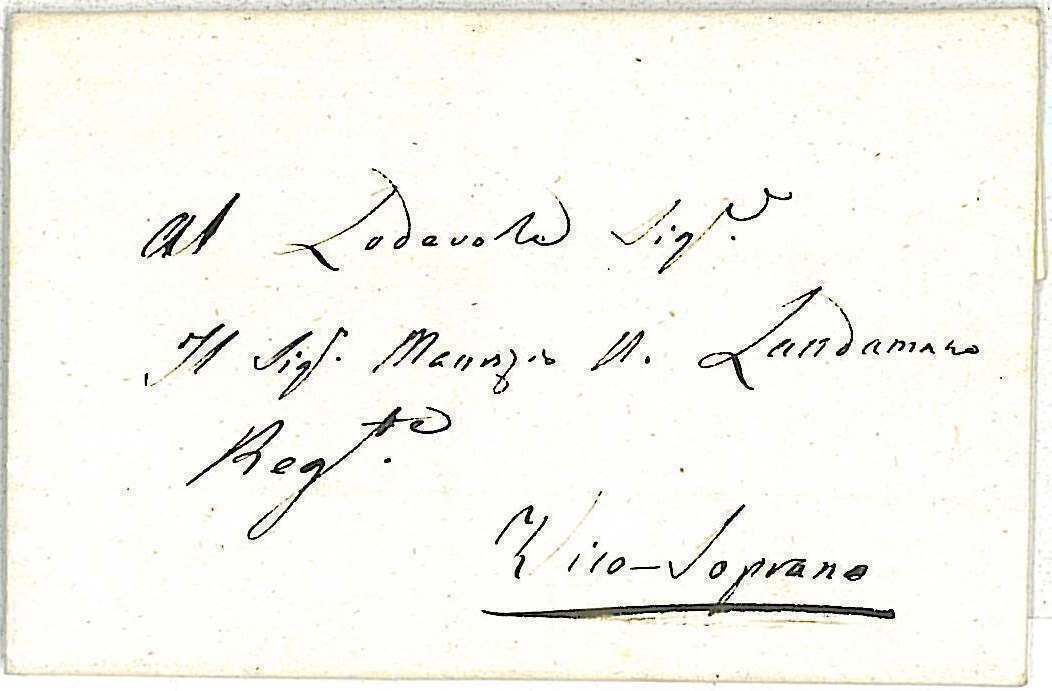 Al Lodevole Sigr.e
Il Sigr. Maurizio N. Landamano
Regte.
Vico-Soprano